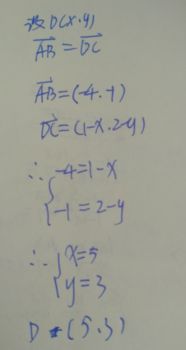 设D(x,y)
AB⃗=DC⃗
AB⃗=(-4.-1)
DC⃗=(1-x.2-y)
∴{-4=1-x
-1=2-y
∴{x=5
y=3
D(5.3)